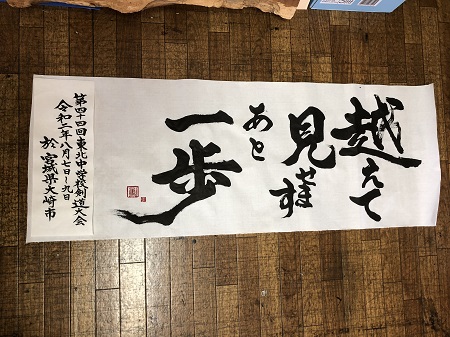 越えて
見せます
あと
一歩
第四十四回東北中学校剣道大会
令和二年八月七日~九日
於 宮城県大崎市